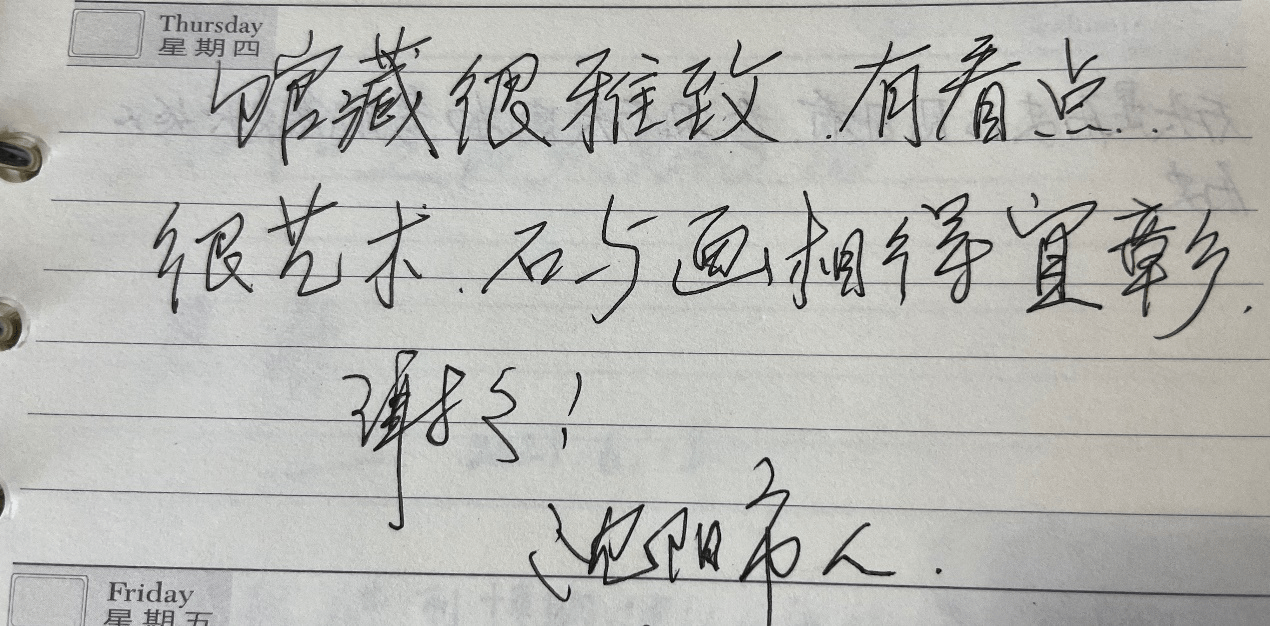 Thursday
星期四
馆藏很雅致.有看点.
很艺术.石与画相得宜彰.
谢谢!
沈阳市人.
Friday
星期五